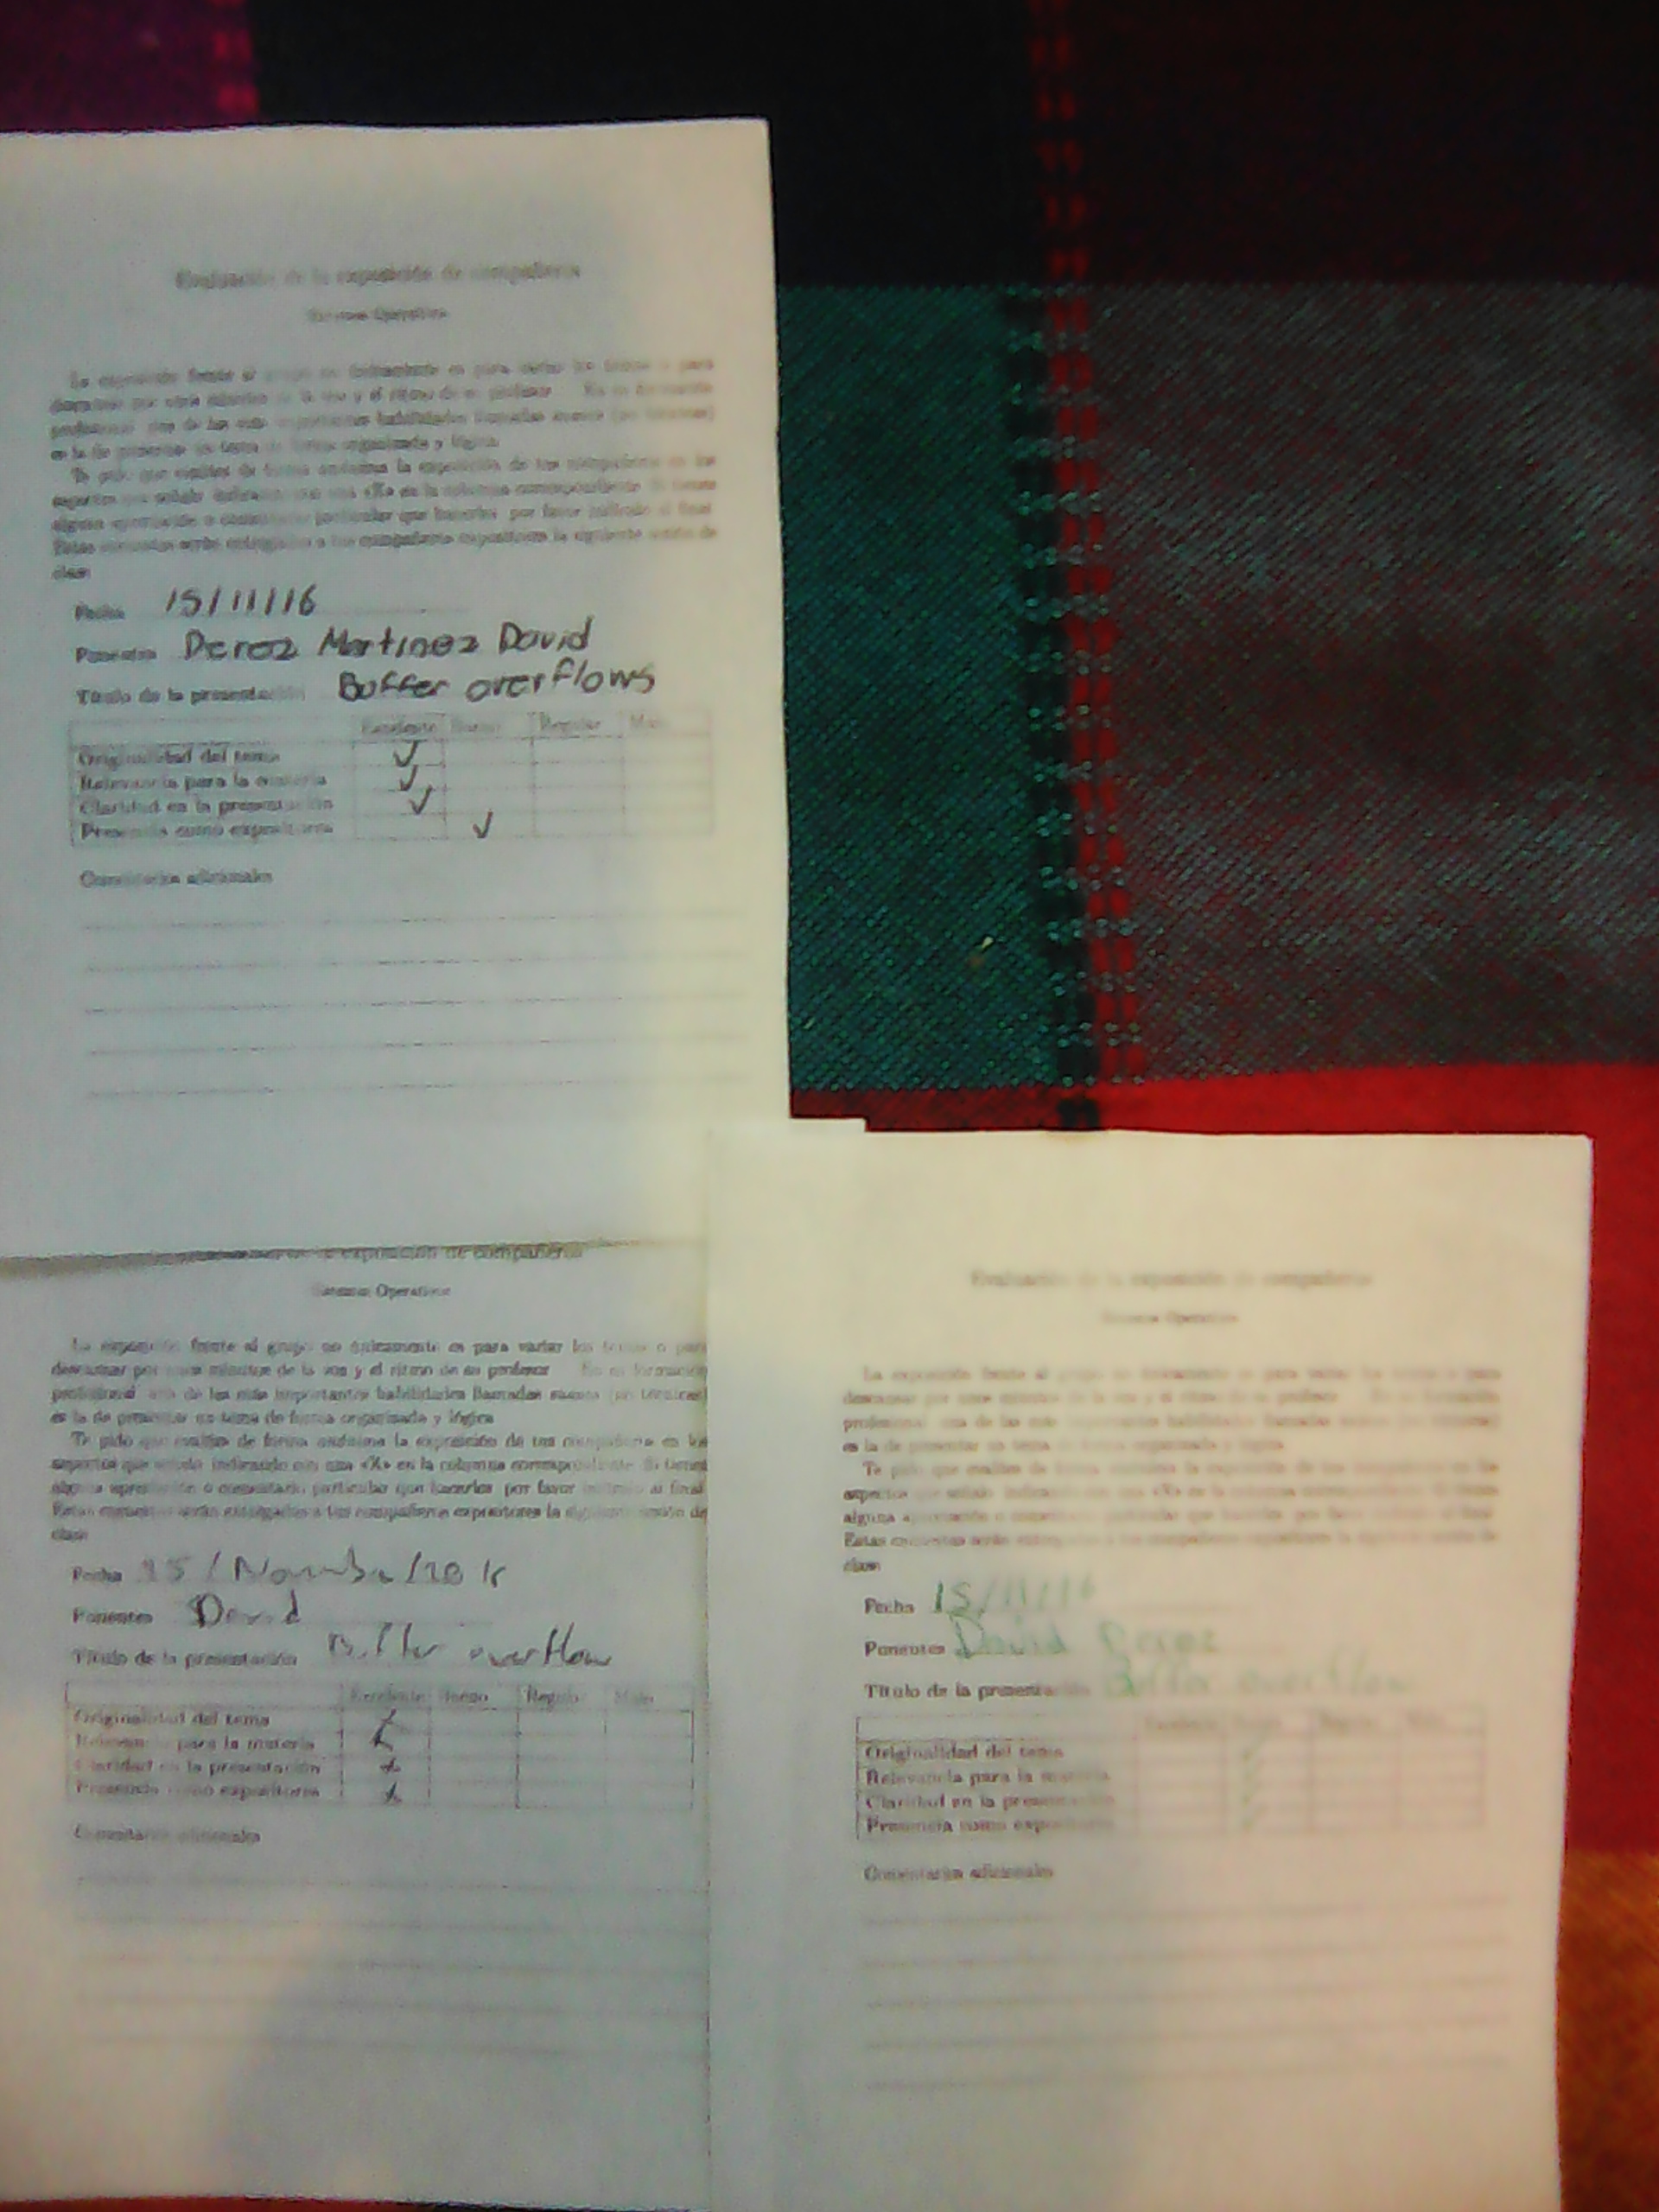 Evaluación de la exposición de compañeros
Sistemas Operativos
La exposición frente al grupo no únicamente es para variar los temas o para
descansar por unos minutos de la voz y el ritmo de su profesor En su formación
profesional una de las más importantes habilidades llamadas suaves (no técnicas)
es la de presentar un tema de forma organizada y lógica
Te pido que evalúes de forma anónima la exposición de tus compañeros en los
aspectos que señalo indicando con una «X» en la columna correspondiente Si tienes
alguna aportación o comentario particular que hacerles por favor indícalo al final
Estas encuestas serán entregadas a tus compañeros expositores la siguiente sesión de
clase
Fecha 15/11/16
Ponentes Perez Martinez David
Título de la presentación Buffer overflows
Excelente Bueno Regular Malo
Originalidad del tema ✓
Relevancia para la materia ✓
Claridad en la presentación ✓
Presencia como expositores ✓
Comentarios adicionales
exposición de compañeros
Sistemas Operativos
La exposición frente al grupo no únicamente es para variar los temas o para
descansar por unos minutos de la voz y el ritmo de su profesor En su formación
profesional una de las más importantes habilidades llamadas suaves (no técnicas)
es la de presentar un tema de forma organizada y lógica
Te pido que evalúes de forma anónima la exposición de tus compañeros en los
aspectos que señalo indicando con una «X» en la columna correspondiente Si tienes
alguna aportación o comentario particular que hacerles por favor indícalo al final
Estas encuestas serán entregadas a tus compañeros expositores la siguiente sesión de
clase
Fecha 15/
Ponentes David
Título de la presentación Buffer overflow
Excelente Bueno Regular Malo
Originalidad del tema X
Relevancia para la materia X
Claridad en la presentación X
Presencia como expositores X
Comentarios adicionales
Evaluación de la exposición de compañeros
Sistemas Operativos
La exposición frente al grupo no únicamente es para variar los temas o para
descansar por unos minutos de la voz y el ritmo de su profesor En su formación
profesional una de las más importantes habilidades llamadas suaves (no técnicas)
es la de presentar un tema de forma organizada y lógica
Te pido que evalúes de forma anónima la exposición de tus compañeros en los
aspectos que señalo indicando con una «X» en la columna correspondiente Si tienes
alguna aportación o comentario particular que hacerles por favor indícalo al final
Estas encuestas serán entregadas a tus compañeros expositores la siguiente sesión de
clase
Fecha 15/11/16
Ponentes David Perez
Título de la presentación Buffer overflow
Excelente Bueno Regular Malo
Originalidad del tema ✓
Relevancia para la materia ✓
Claridad en la presentación ✓
Presencia como expositores ✓
Comentarios adicionales